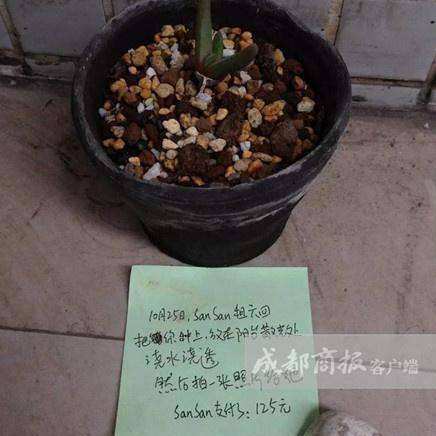 10月25日，SanSan租六回
把你种上，放在阳台散光处
浇水浇透
然后拍一张照片给她
SanSan支付了：125元
成都商报客户端